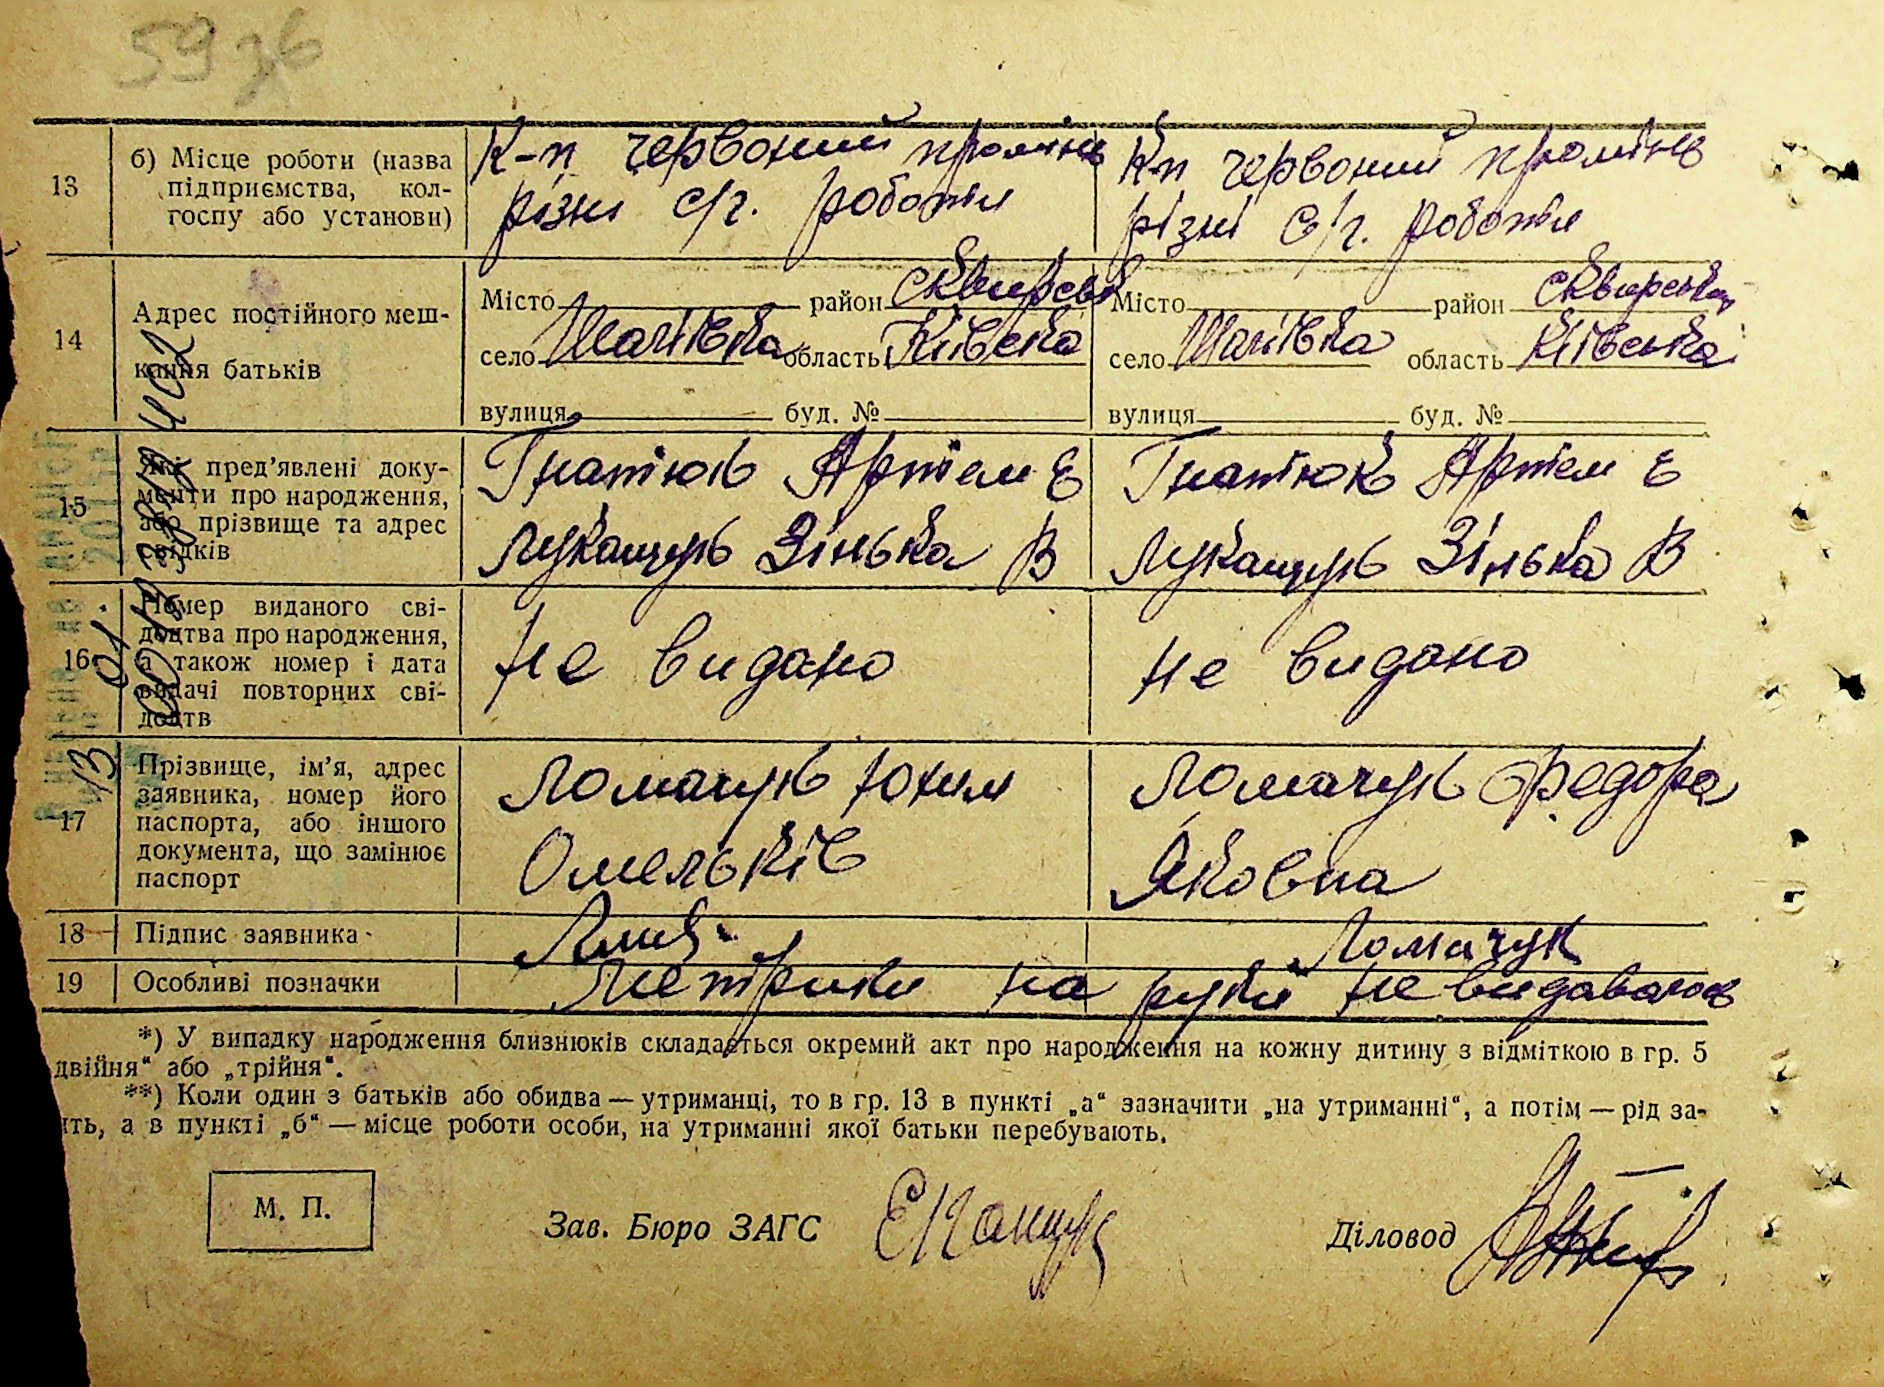 59 зв
13
б) Місце роботи (назва
підприємства, кол-
госпу або установи)
К-п червоний промінь
різні с/г. роботи
К-п червоний промінь
різні с/г. роботи
14
Адрес постійного меш-
кання батьків
Місто район Сквирськ
село Шаліївка область Київська
вулиця буд. №
Місто район Сквирськ
село Шаліївка область Київська
вулиця буд. №
15
Які пред’явлені доку-
менти про народження,
або прізвище та адрес
свідків
Гнатюк Артем Є
Лукащук Зінька В
Гнатюк Артем Є
Лукащук Зінька В
16
Номер виданого сві-
доцтва про народження,
а також номер і дата
видачі повторних сві-
доцтв
Не видано
Не видано
17
Прізвище, ім’я, адрес
заявника, номер його
паспорта, або іншого
документа, що замінює
паспорт
Ломачук Юхим
Омельків
Ломачук Федора
Яковна
18
Підпис заявника
Ломачук
19
Особливі позначки
Метрики на руки не видавалось
*) У випадку народження близнюків складається окремий акт про народження на кожну дитину з відміткою в гр. 5
двійня“ або „трійня“.
**) Коли один з батьків або обидва — утриманці, то в гр. 13 в пункті „а“ зазначити „на утриманні“, а потім — рід за-
ить, а в пункті „б“ — місце роботи особи, на утриманні якої батьки перебувають.
М. П.
Зав. Бюро ЗАГС
Діловод